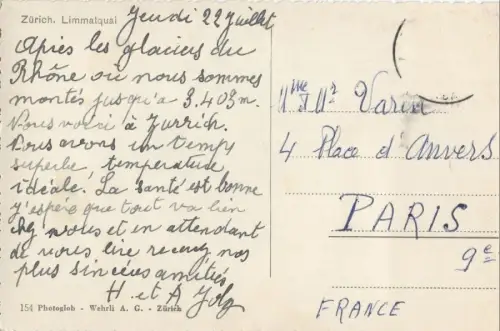 Zürich. Limmatquai
Jeudi 22 Juillet
Après les glaciers du
Rhône où nous sommes
montés jusqu'a 3.403 m.
Nous voici à Zurrich.
Nous avons un temps
superbe, température
idéale. La santé est bonne
j'espère que tout va bien
chez vous et en attendant
de vous lire recevez nos
plus sincères amitiés
H. et A
154 Photoglob - Wehrli A. G. - Zürich
Mme et Mr Varin
4 Place d'Anvers
PARIS
9e
FRANCE